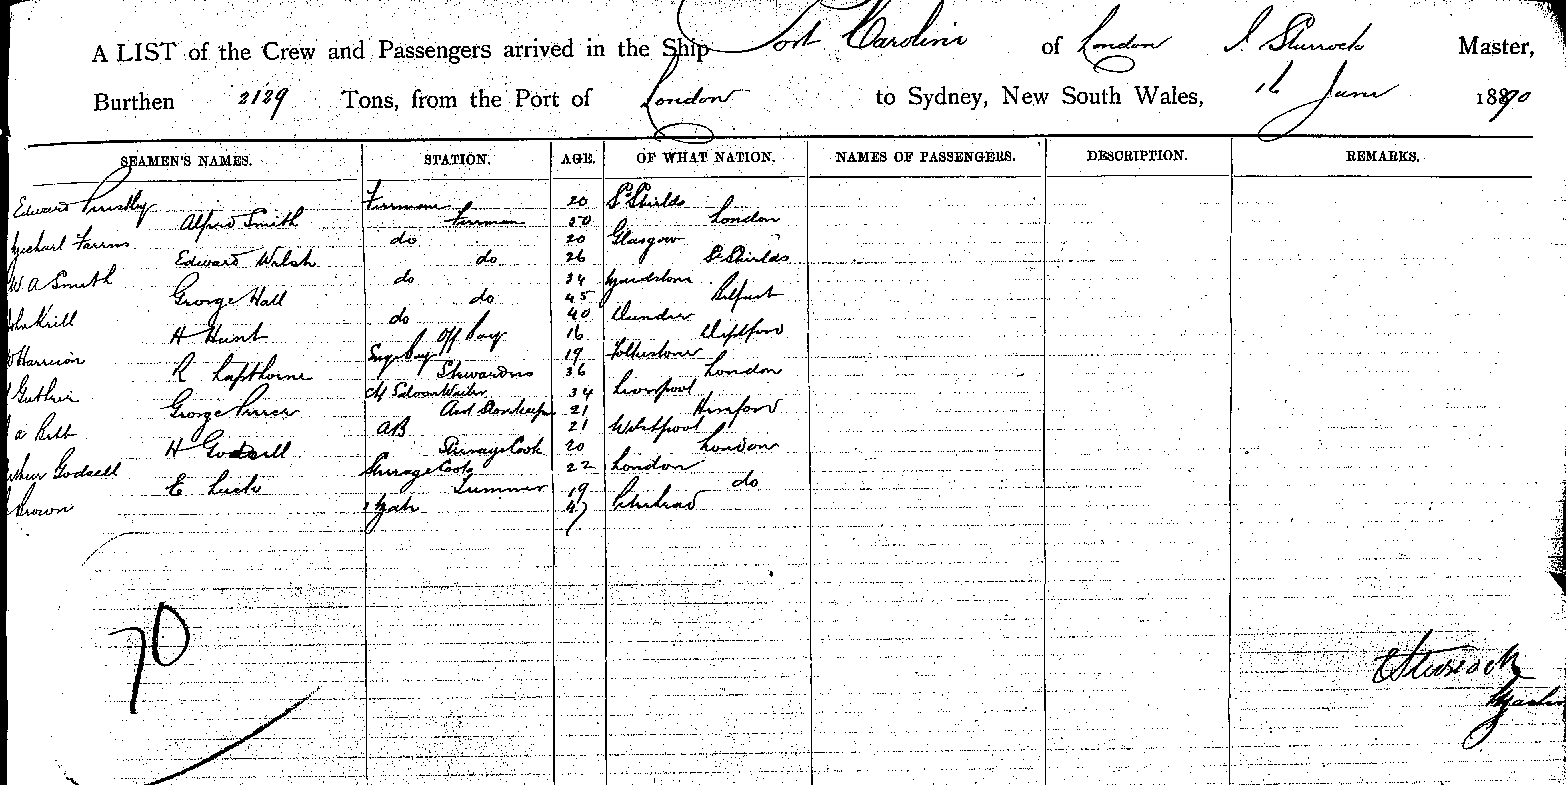 A LIST of the Crew and Passengers arrived in the Ship Port Caroline of London J Sturrock Master,
Burthen 2129 Tons, from the Port of London to Sydney, New South Wales, 16 June 1890
SEAMEN'S NAMES. STATION. AGE. OF WHAT NATION. NAMES OF PASSENGERS. DESCRIPTION. REMARKS.
Edward Priestley Fireman 20 S. Shields
Alfred Smith Fireman 50 London
Michael Farms do 20 Glasgow
Edward Walsh do 26 S. Shields
W A Smith do 34 Maidstone
George Hall do 45 Belfast
John Krill do 40 Dundee
H Hunt Off Boy 16 Deptford
Harrison Engs Boy 19 Folkestone
R Lapthorne Stewardess 36 London
Guthrie Ch Saloon Waiter 34 Liverpool
George Pierce Asst Storekeeper 21 Hereford
a Bell AB 21 Welshpool
H Godsell Steerage Cook 20 London
Arthur Godsell Steerage Cook 22 London
E Lusk Trimmer 19 do
Brown Mate 47 Peterhead
70
Sturrock
Master